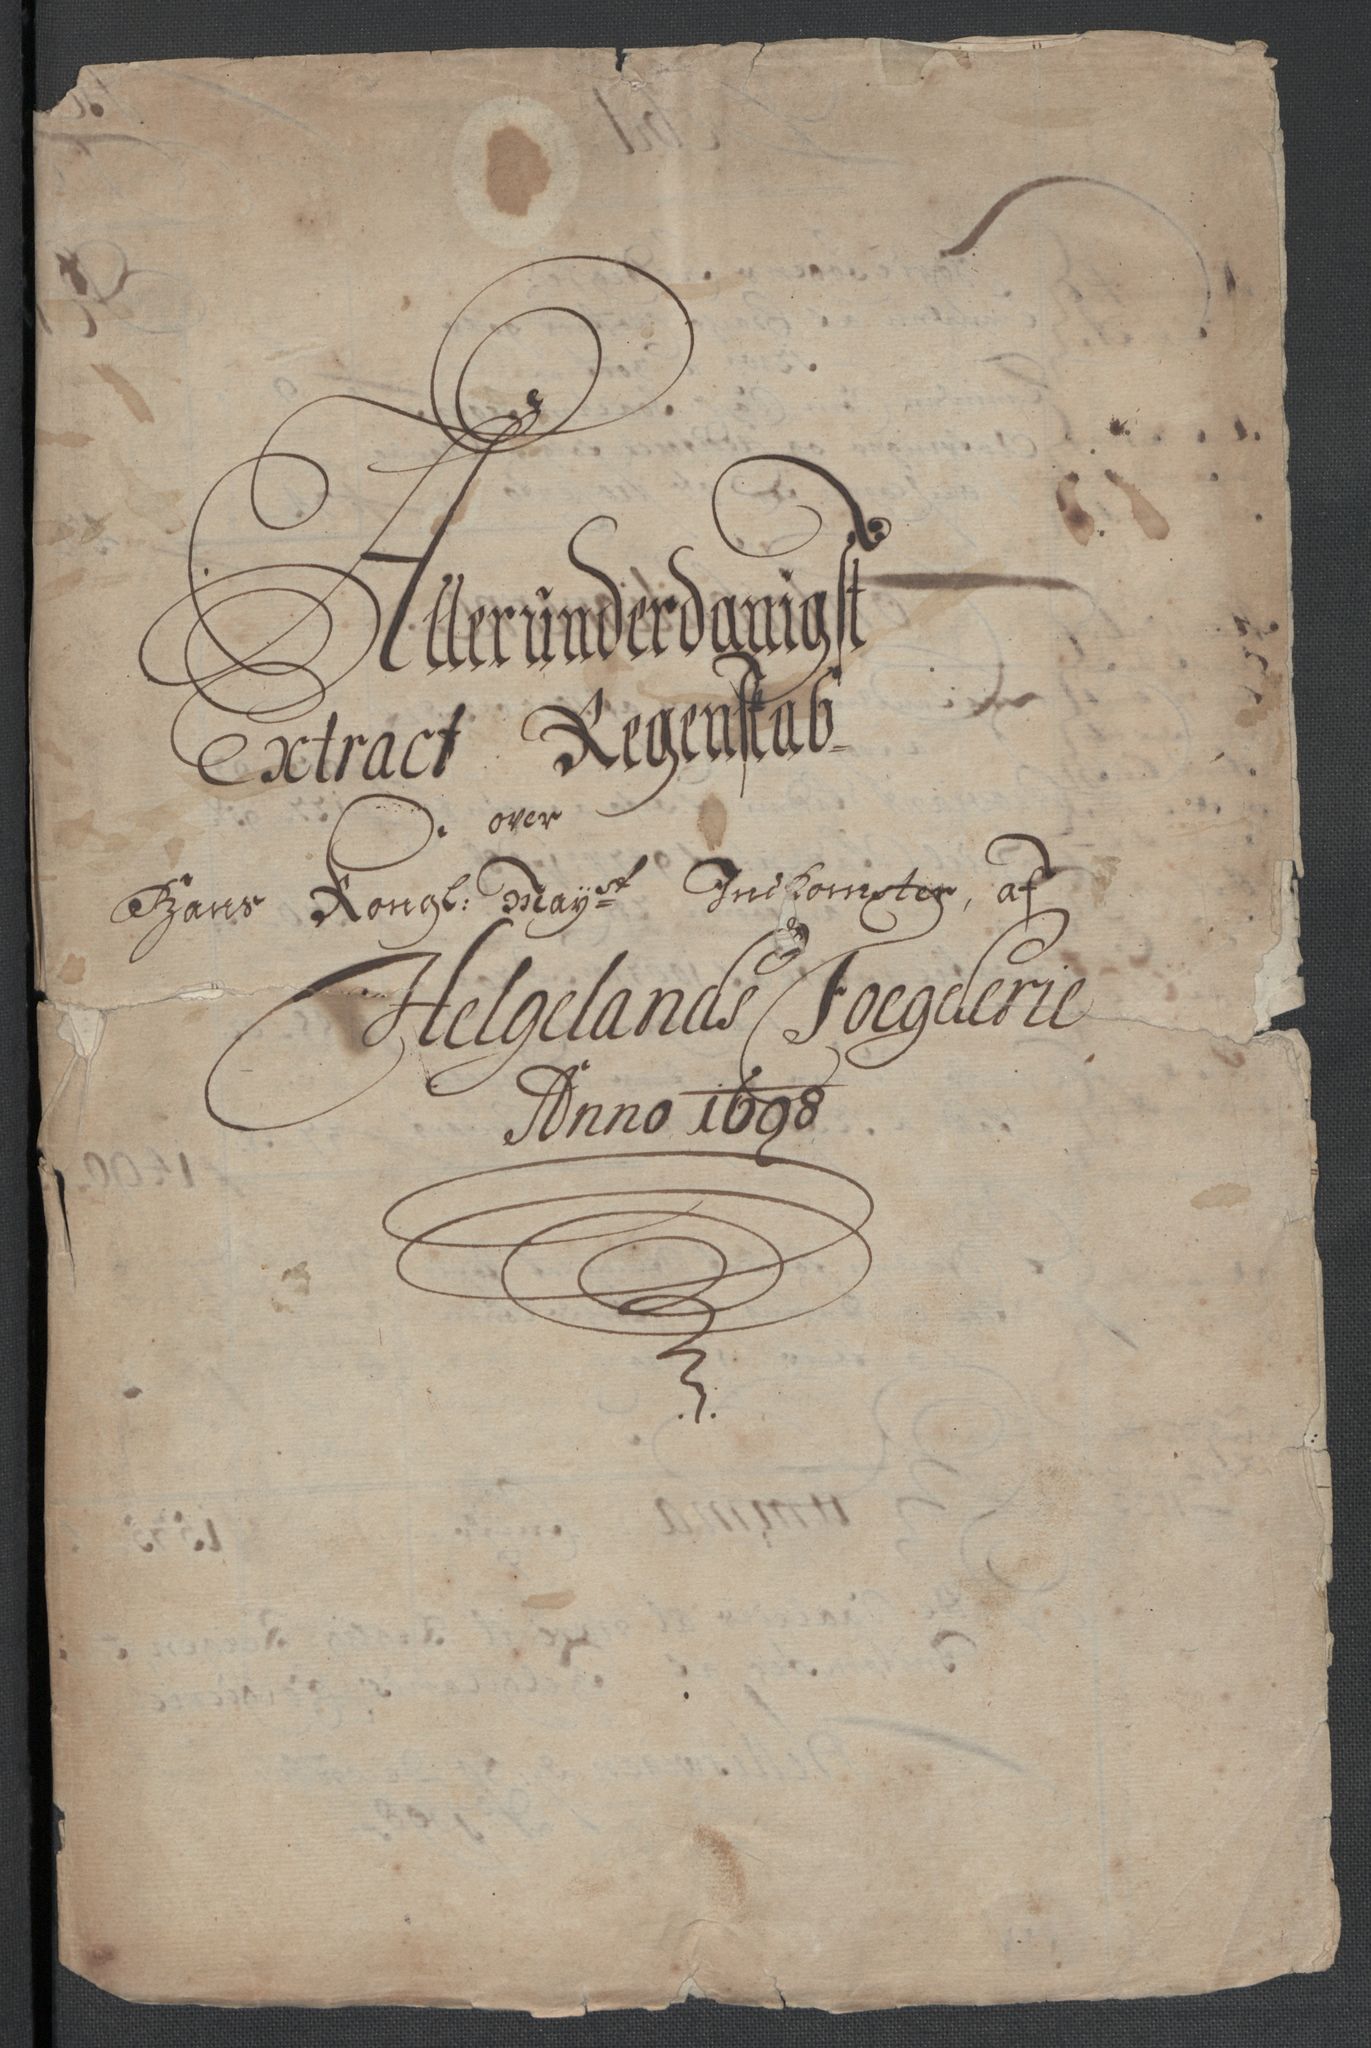 Allerunderdanigst
Extract Regenskab
over
Hans Kongl: Mayst Indkomster, af
Helgelands Foegderie
Anno 1698